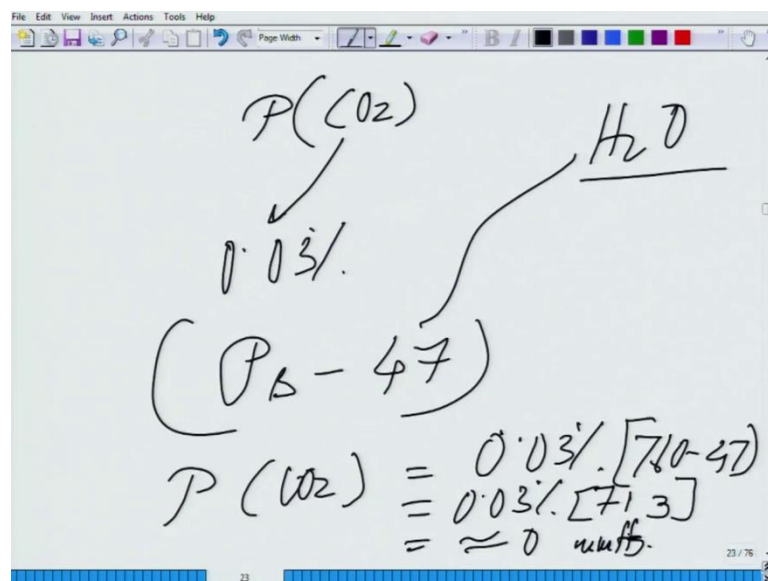 File Edit View Insert Actions Tools Help
Page Width
P(CO2)
H2O
0.03%.
(PB - 47)
P (CO2) = 0.03%. [760-47)
= 0.03%. [713]
= ≈ 0 mmHg.
23 / 76
23